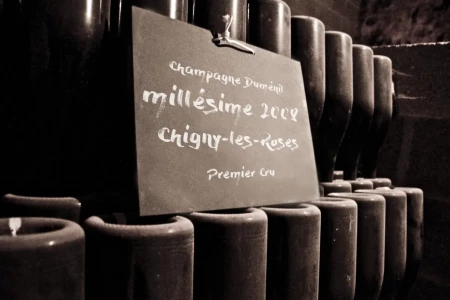 Champagne Duménil
millésime 2008
Chigny-les-Roses
Premier Cru